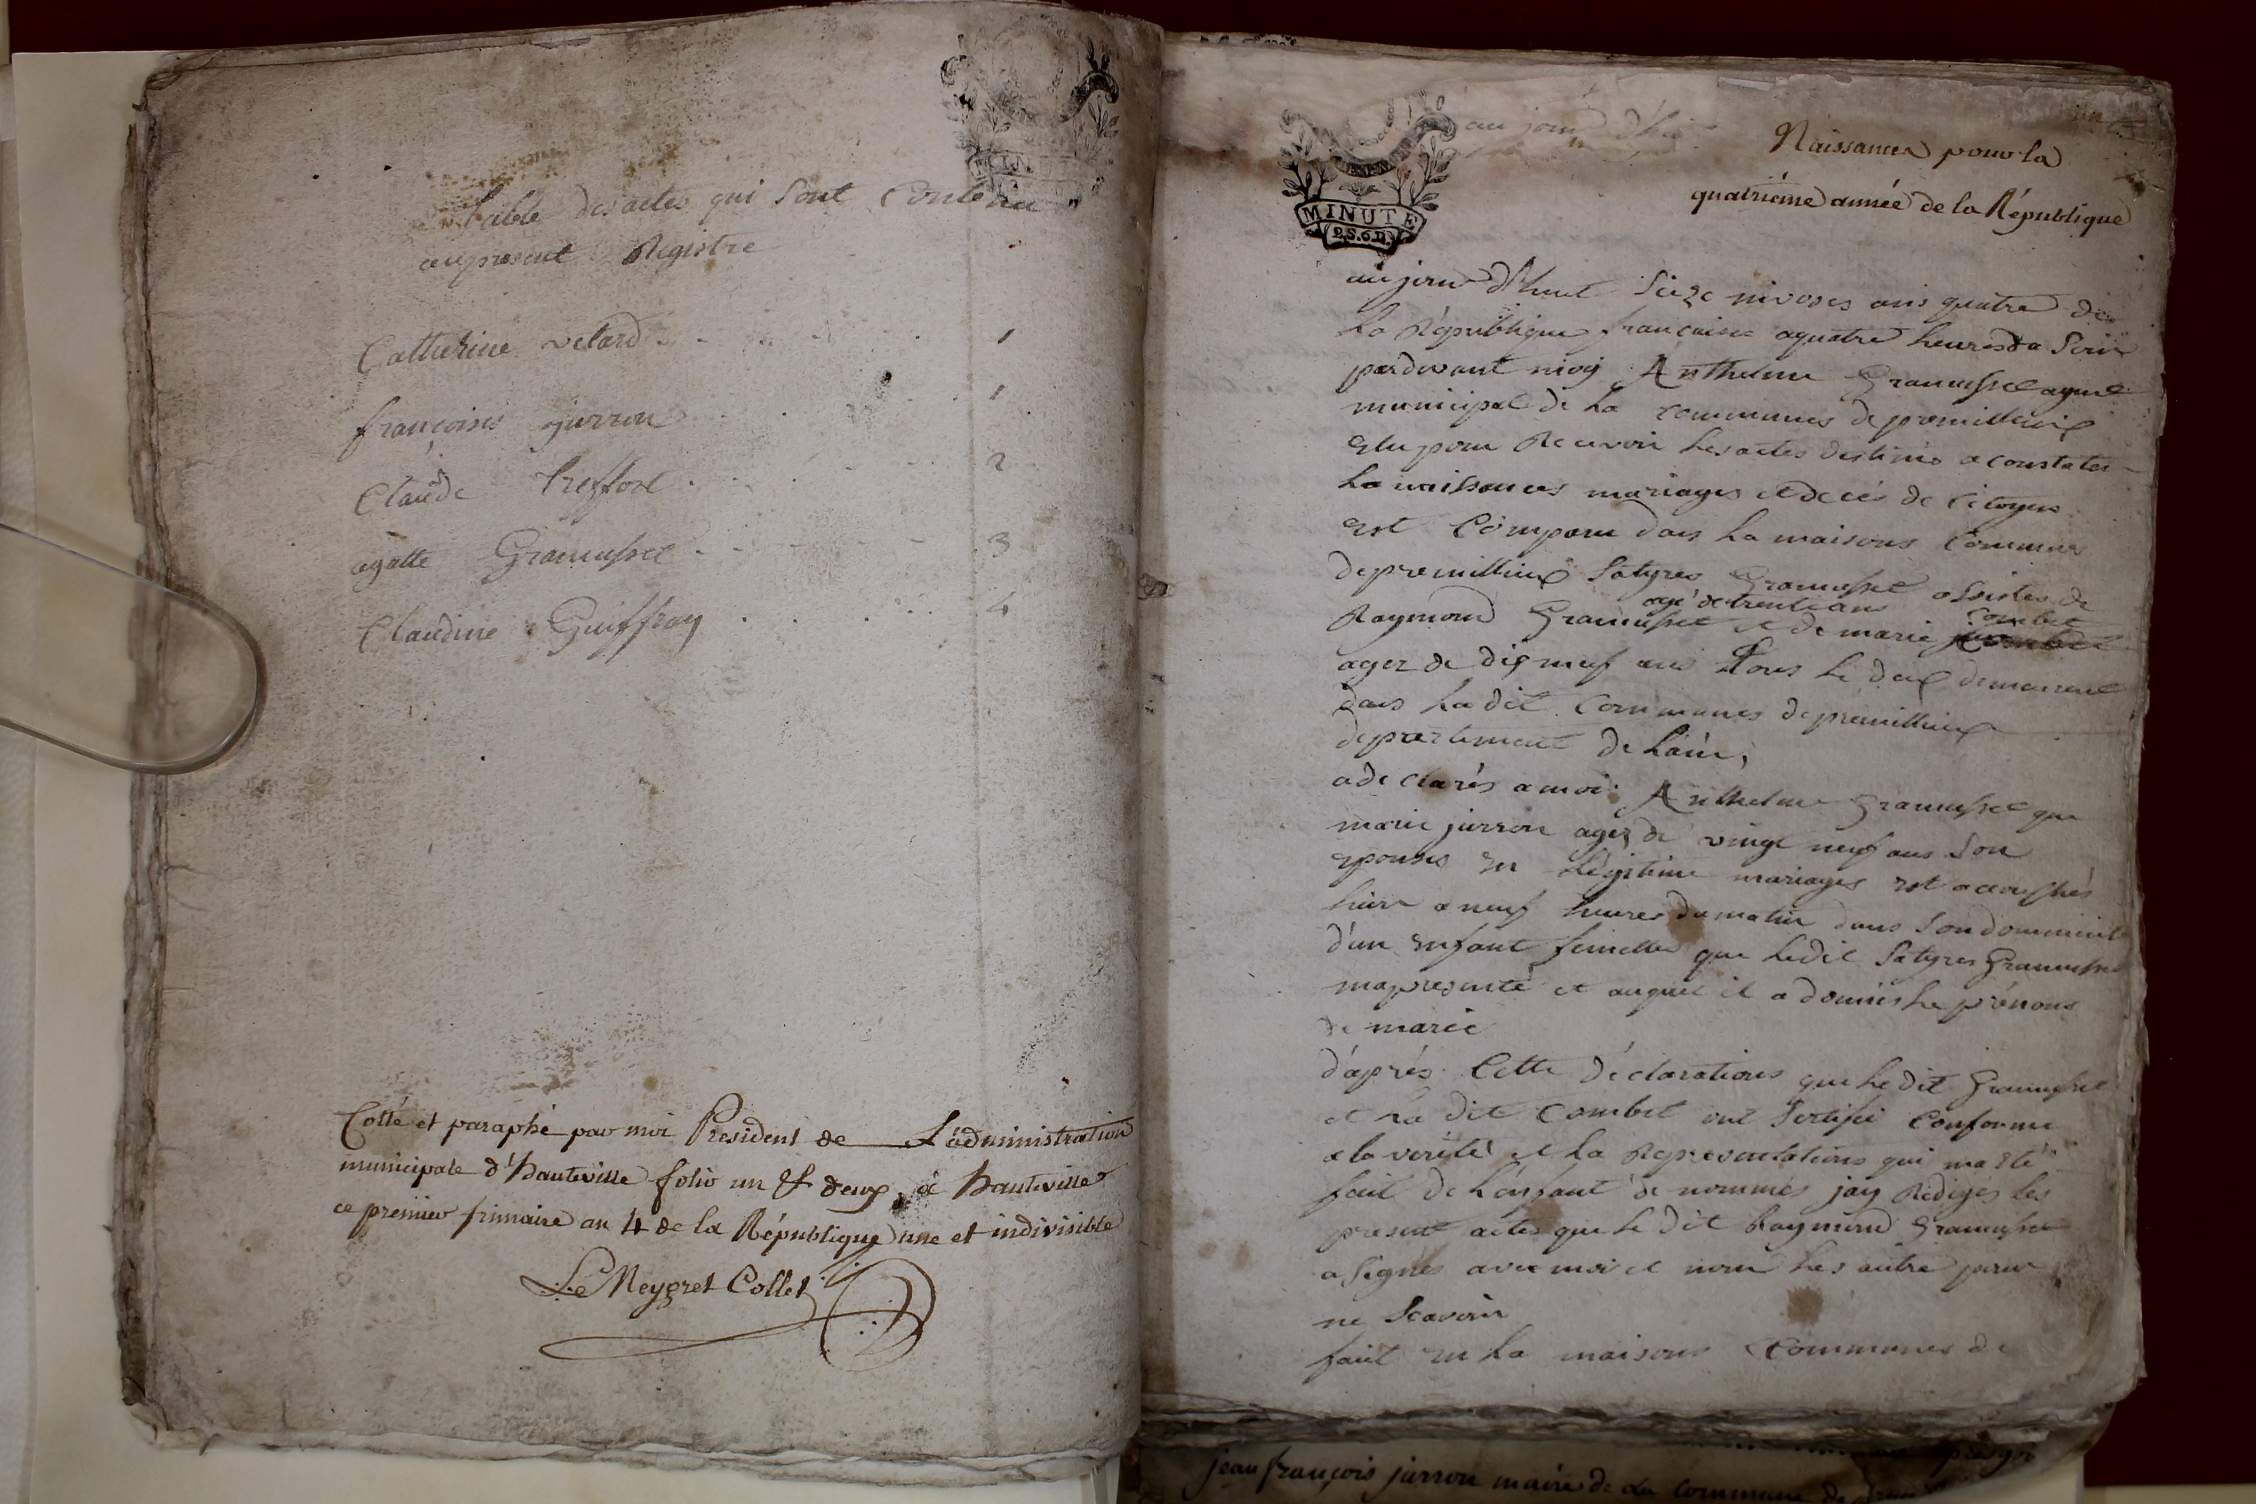 table des actes qui sont contenu
au present Registre
Catherine velard 1
françoises jurron 1
Claude treffort 2
agatte Gramusset 3
Claudine Guiffray 4
Cotté et paraphé par moi President de L'administration
municipale d'hauteville folio un & deux, à hauteville
ce premier frimaire an 4 de la République une et indivisible
Le Meygret Collet
au jourd'hui
Naissances pour la
quatriéme année de la République
MINUTE
2.S.6.D.
au jourd'huit seize nivoses ans quatre de
la République française a quatre heures du Soir
pardevant moy Anthelme Gramusset agent
municipal de la communes de premillieux
elu pour Recevoir les actes destinés a constater
la naissances mariages et decés de citoyens
est Comparu dans la maisons Communes
de premillieux Satyres Gramusset assistes de
agé de trente ans Combet
Raymond Gramusset et de marie
ager de dix neuf ans tous le deux demeurent
dans la dit Communes de premillieux
departement de Lain,
a declarés a moi Anthelme Gramusset que
marie jurron ager de vingt neuf ans Son
epouses en légitime mariages est accouchés
hiere a neuf heures du matin dans Son domicile
d'un enfant femelle que ledit Satyres Gramusset
ma presenté et auquel il a donnés le prénoms
de marie
d'aprés Cette déclarations que le dit Gramusset
et la dit Combet ont Sertifié Conforme
a la verité et la Representations qui ma été
fait de l'enfant de nommés jay Rédigés les
present actes que le dit Raymond Gramusset
a Signés avec moi et non les autre pour
ne Scavoir
fait en la maisons Communes de
jean françois jurron maire de La Commune de